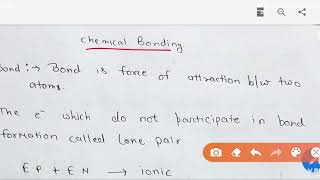 Chemical Bonding
Bond :→ Bond is force of attraction b/w two
atoms.
The e⁻ which do not participate in bond
formation called lone pair
E P + E N → ionic